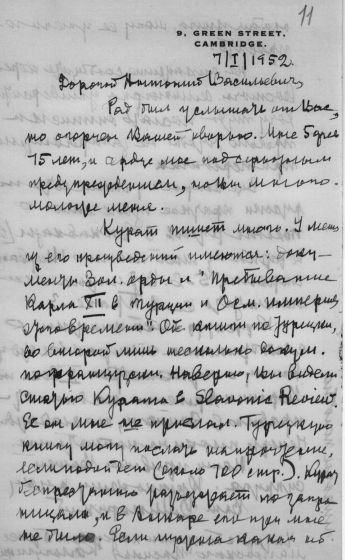 11
9, GREEN STREET,
CAMBRIDGE.
7/I/1952.
Дорогой Антоний Васильевич,
Рад был услышать от Вас,
но огорчен Вашей хворью. Мне
75 лет, и сердце мое под серьезным
предупреждением, но Вы много
моложе меня.
Курат пишет много. У меня
из его произведений имеются: Доку-
менты Зол. орды и "Пребывание
Карла XII в Турции и Осм. империя
того времени". Обе книги по Турецки,
во второй лишь несколько докум.
по французски. Наверно, Вы видели
статью Курата в Slavonic Review.
Ее он мне не прислал. Турецкую
книгу могу послать на прочтение,
если пойдет (около 700 стр.). Курат
беспрестанно разъезжает по
и в Анкаре его при мне
не было. Если нужна какая